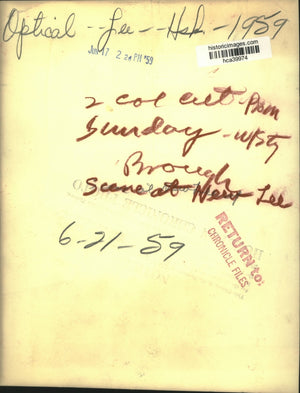 Optical - Lee - Hsh - 1959
historicimages.com
hca39974
JUN 17 2 24 PM '59
2 col cut - Pam
Sunday - w/sty
Brough
Scene at New Lee
6-21-59
RETURN to:
CHRONICLE FILES